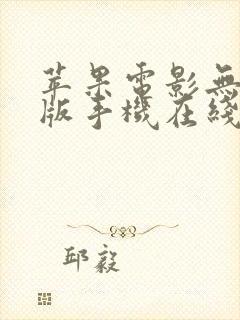 苹果電影無
版手機在綫
邱毅